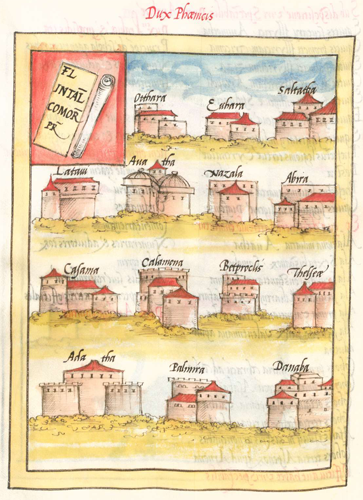 Dux Phœnicis
FL
INTAL
COMOR̄
PR̄
Otthara
Euhara
Saltatha
Lataui
Auatha
Nazala
Abira
Casama
Calamena
Betproclis
Thelseæ
Adatha
Palmira
Danaba